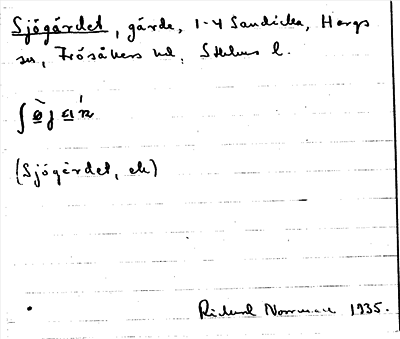 Sjögärdet, gärde, 1-4 Sandika, Hargs
sn, Frösåkers hd, Sthlms l.
(Sjögärdet, ek)
Rickard Norrman 1935.